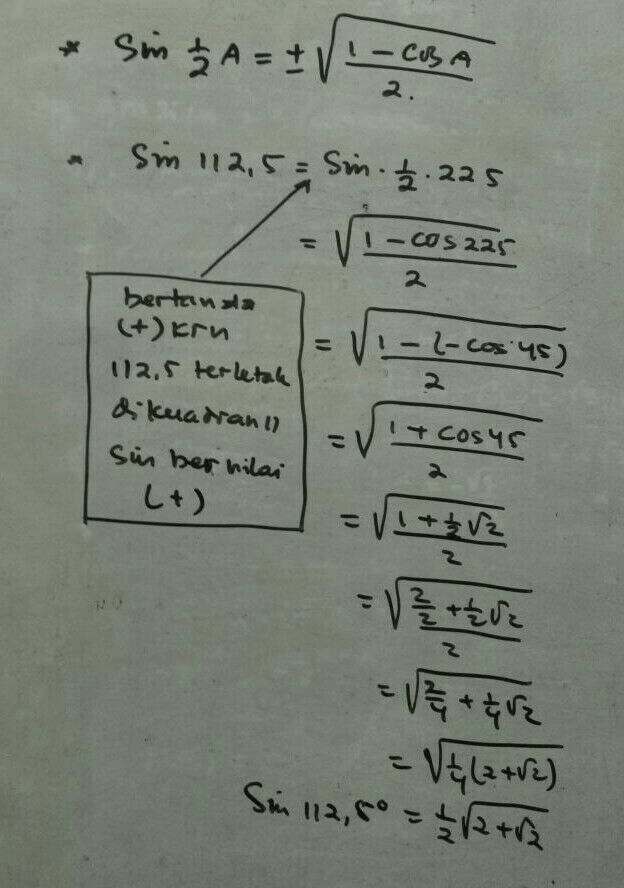 * Sin ½ A = ± √((1 - cos A)/2).
* Sin 112,5 = Sin · ½ · 225
= √((1 - cos 225)/2)
= √((1 - (-cos 45))/2)
= √((1 + cos 45)/2)
= √((1 + ½√2)/2)
= √((2/2 + ½√2)/2)
= √(2/4 + ¼√2)
= √(¼(2+√2))
Sin 112,5° = ½√(2+√2)
bertanda
(+) krn
112,5 terletak
dikuadran II
Sin bernilai
(+)